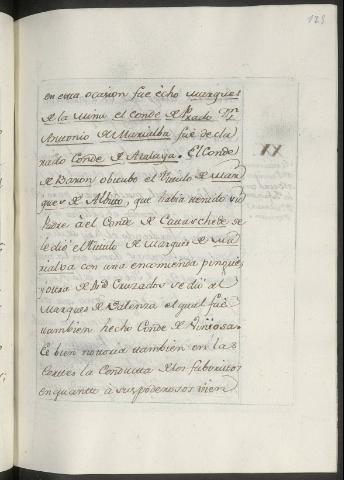 125
en esta ocasion fue echo Marques
de la Mina el Conde de Prado Dn
Antonio de Marialba fue decla
rado Conde de Atalaya. El Conde
de Baron obtubo el Titulo de Mar
ques de Albito, que habia tenido su
Padre à el Conde de Castanhede se
le dió el Titulo de Marques de Ma
rialva con una encomienda pingue
y otra de Cruzados se dió al
Marques de Valenza el qual fué
tambien hecho Conde de Vimiosa.
Es bien notoria tambien en las
Cortes la Conducta de los faboritos
en quanto à sus poderosos vien
XX